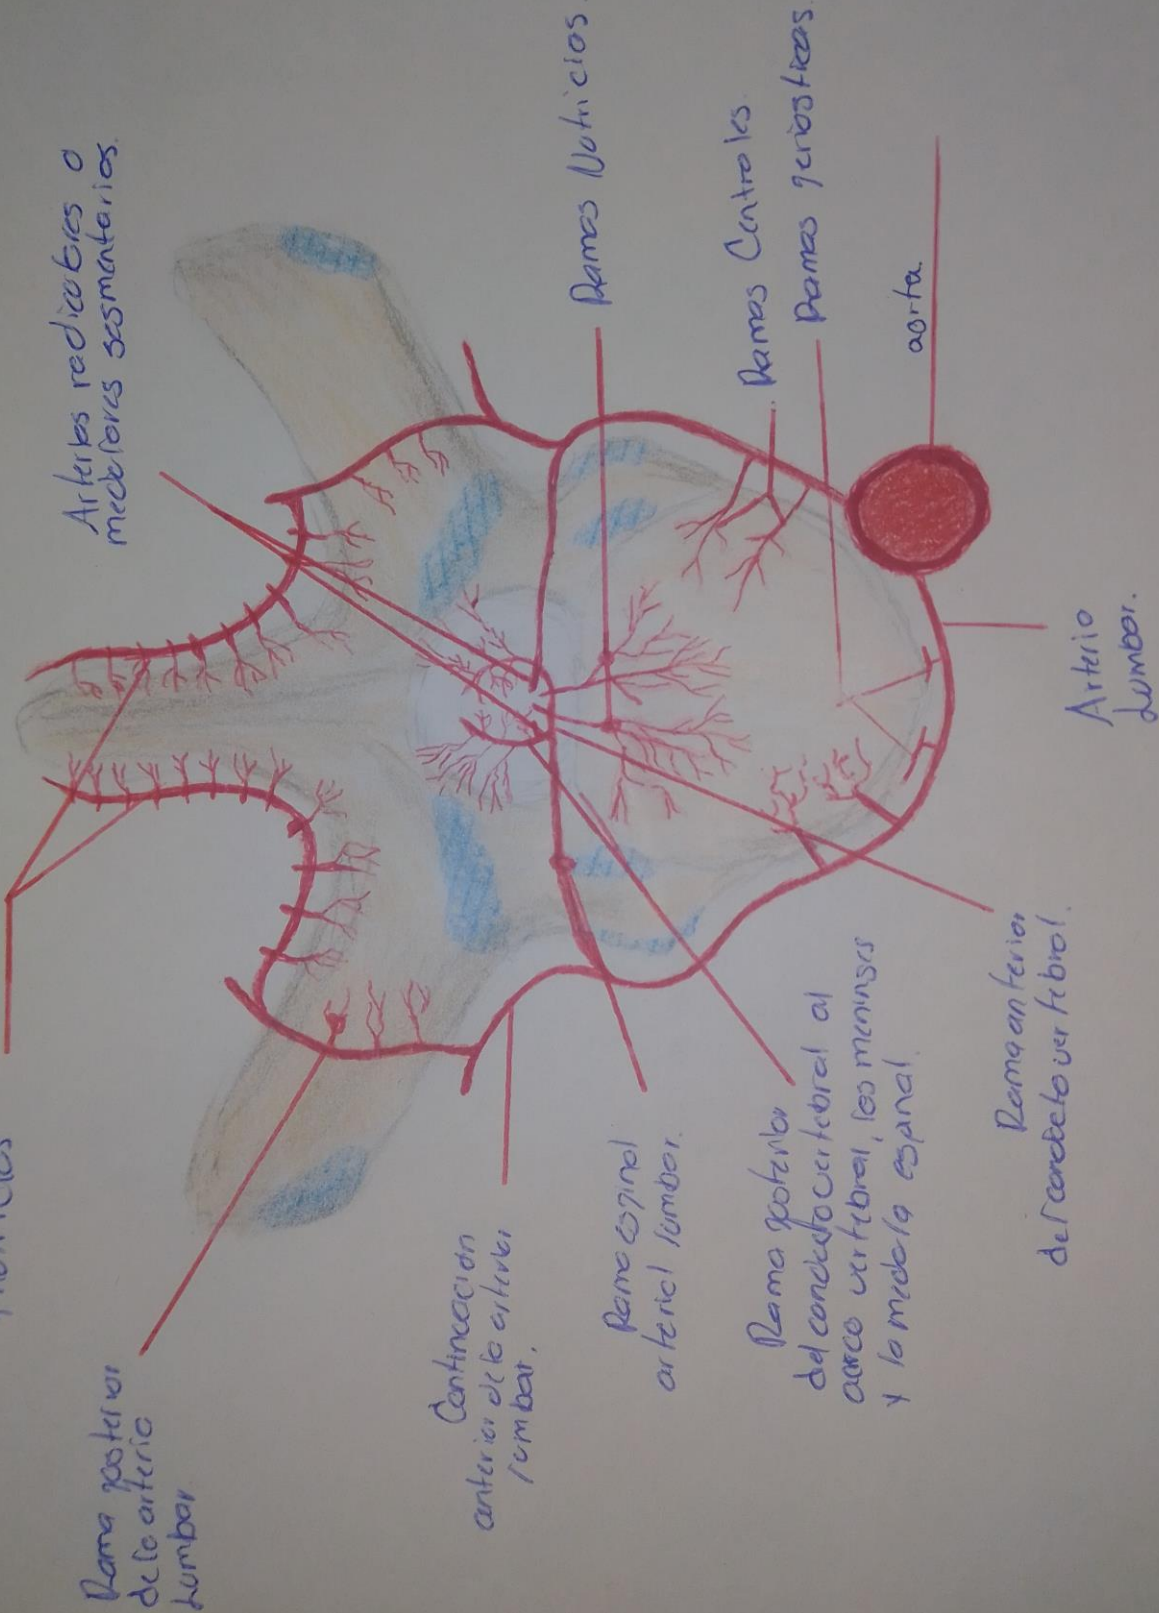 Arterias radiculares o
medulares segmentarias.
Ramas Nutricias.
Ramas Centrales.
Ramas periosticas.
aorta.
Arteria
Lumbar.
Rama anterior
del conducto vertebral.
Rama posterior
del conducto vertebral al
arco vertebral, las meninges
y la medula espinal.
Rama espinal
arterial lumbar.
Continuacion
anterior de la arteria
lumbar.
Rama posterior
de la arteria
Lumbar